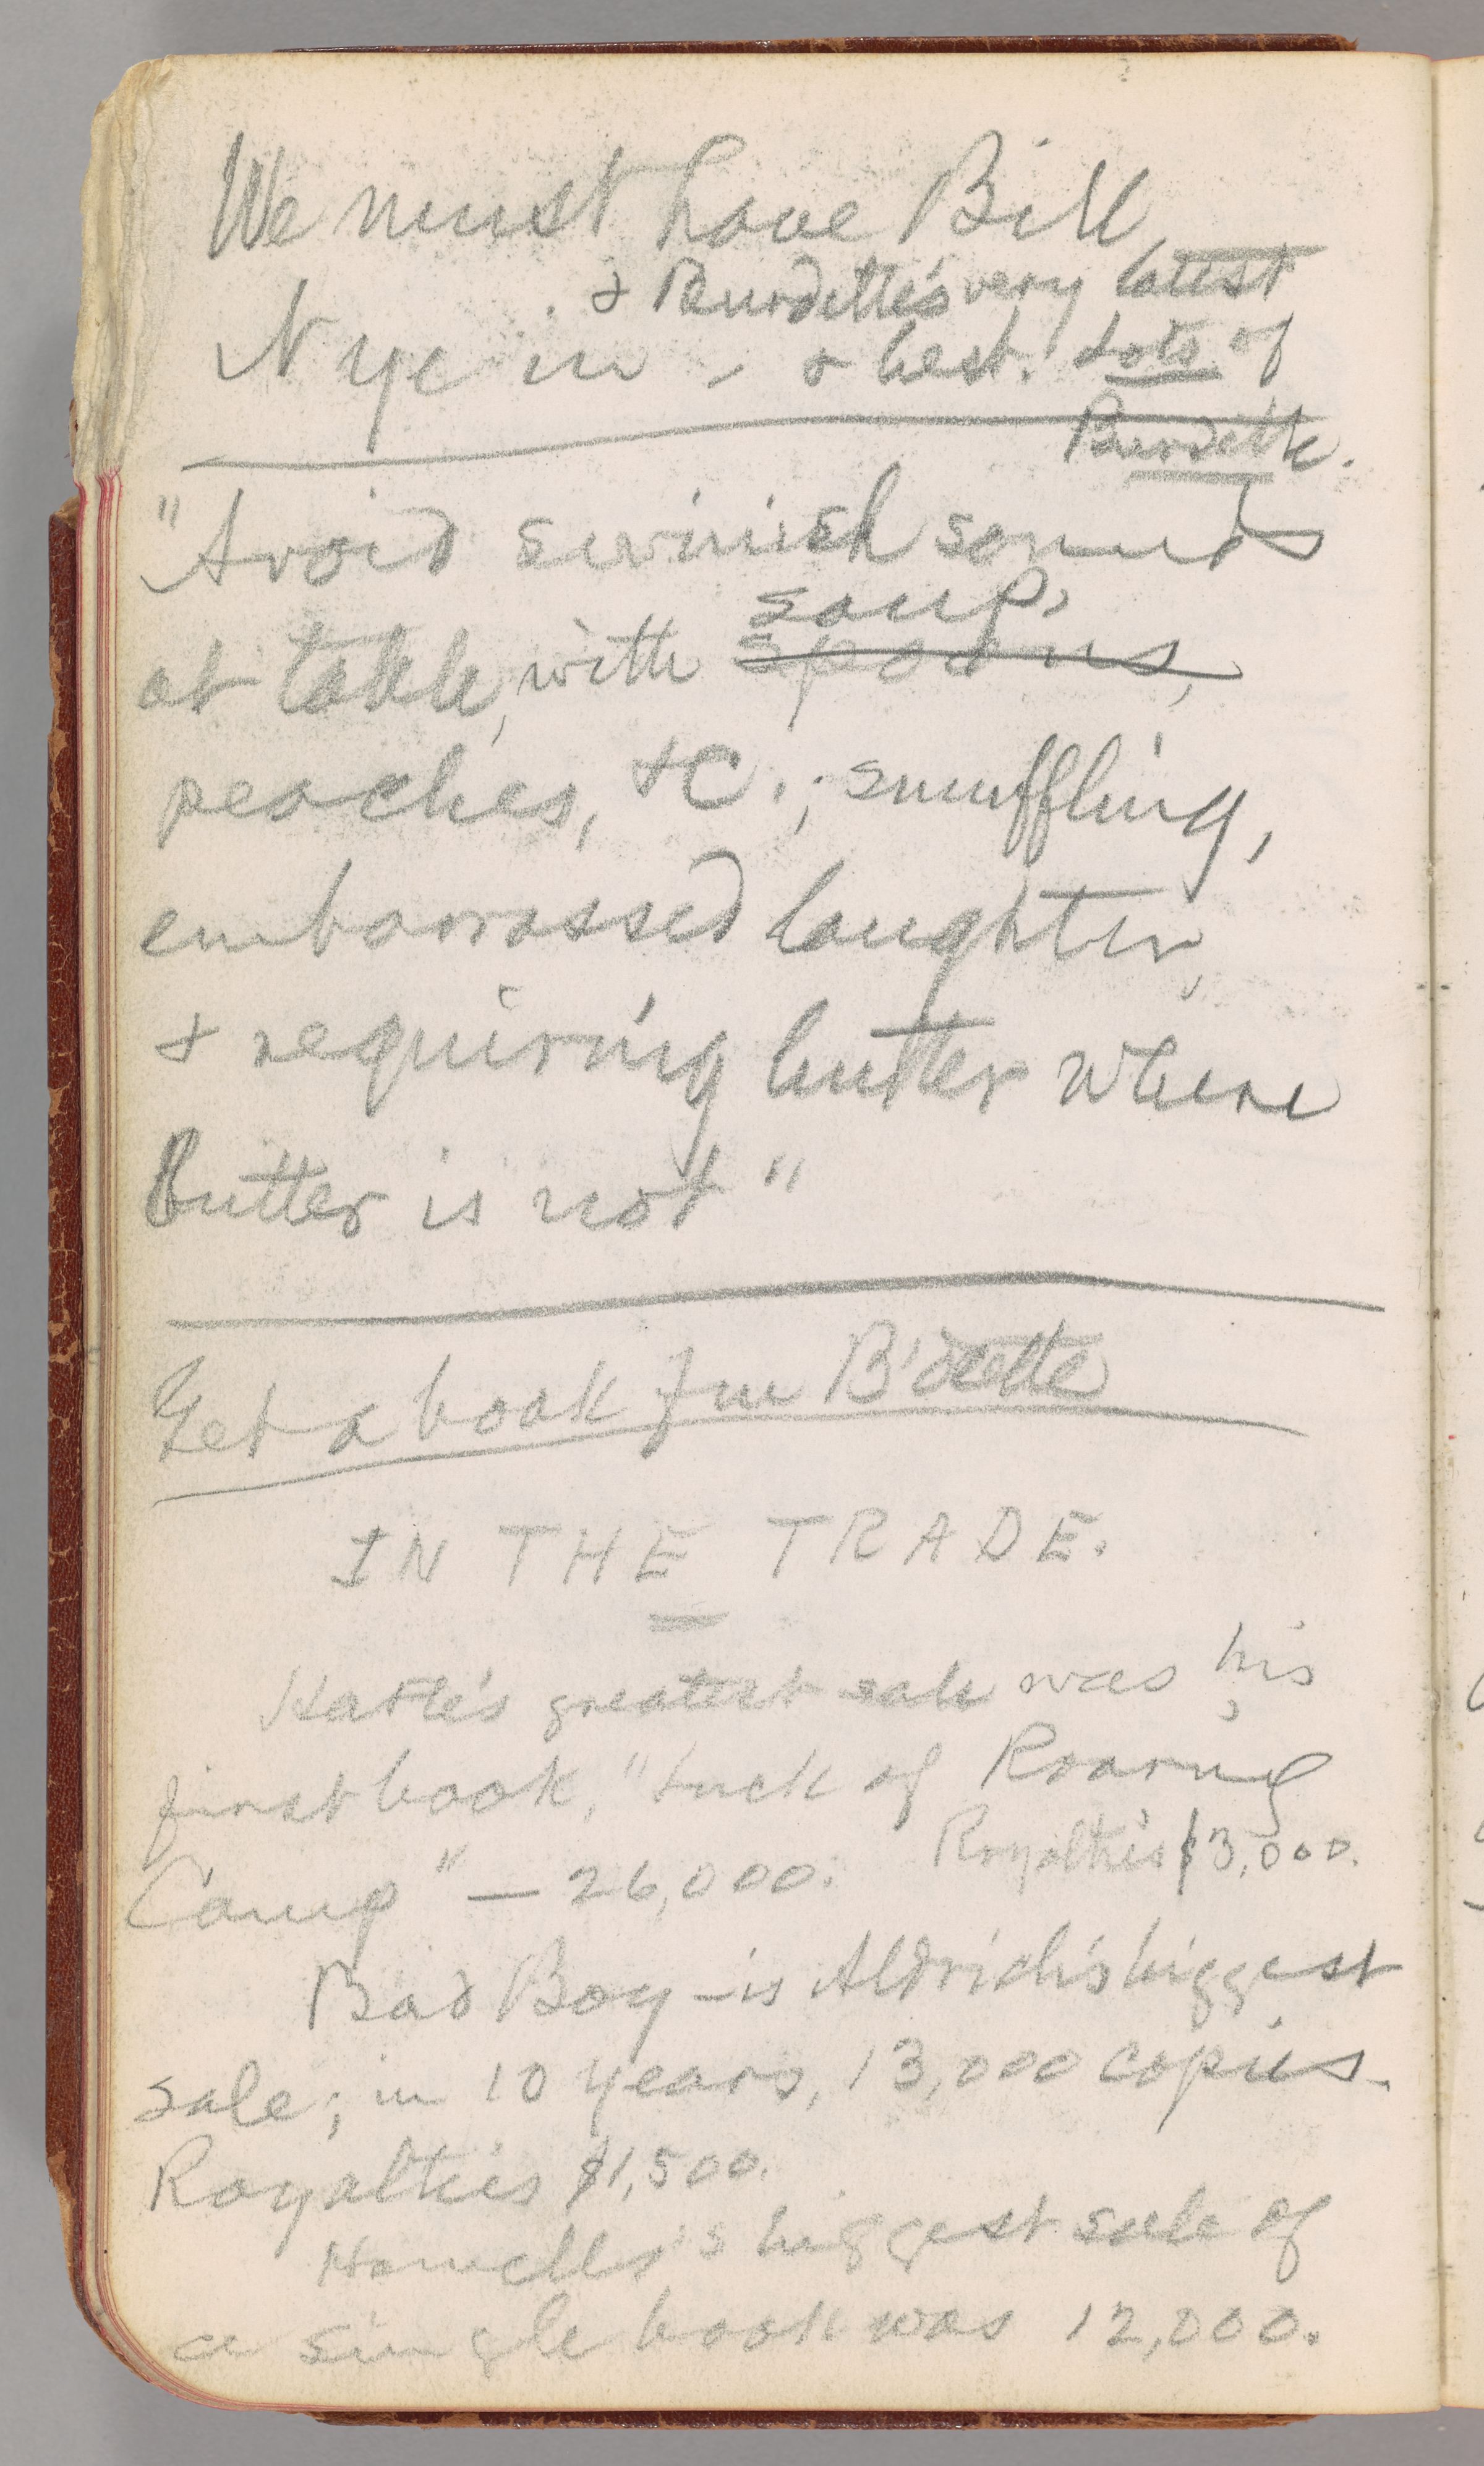 We must have Bill
Nye in, & Burdette's very latest
& best. Lots of
Burdette.
"Avoid swinish sounds
at table, with spoons, soup,
peaches, &c.; snuffling,
embarrassed laughter,
& requiring butter where
Butter is not"
Get a book fm B'dette
IN THE TRADE.
Harte's greatest sale was his
first book, "Luck of Roaring
Camp" — 26,000. Royalties $3,000.
Bad Boy – is Aldrich's biggest
sale; in 10 years, 13,000 copies.
Royalties $1,500.
Howells's biggest sale of
a single book was 12,000.